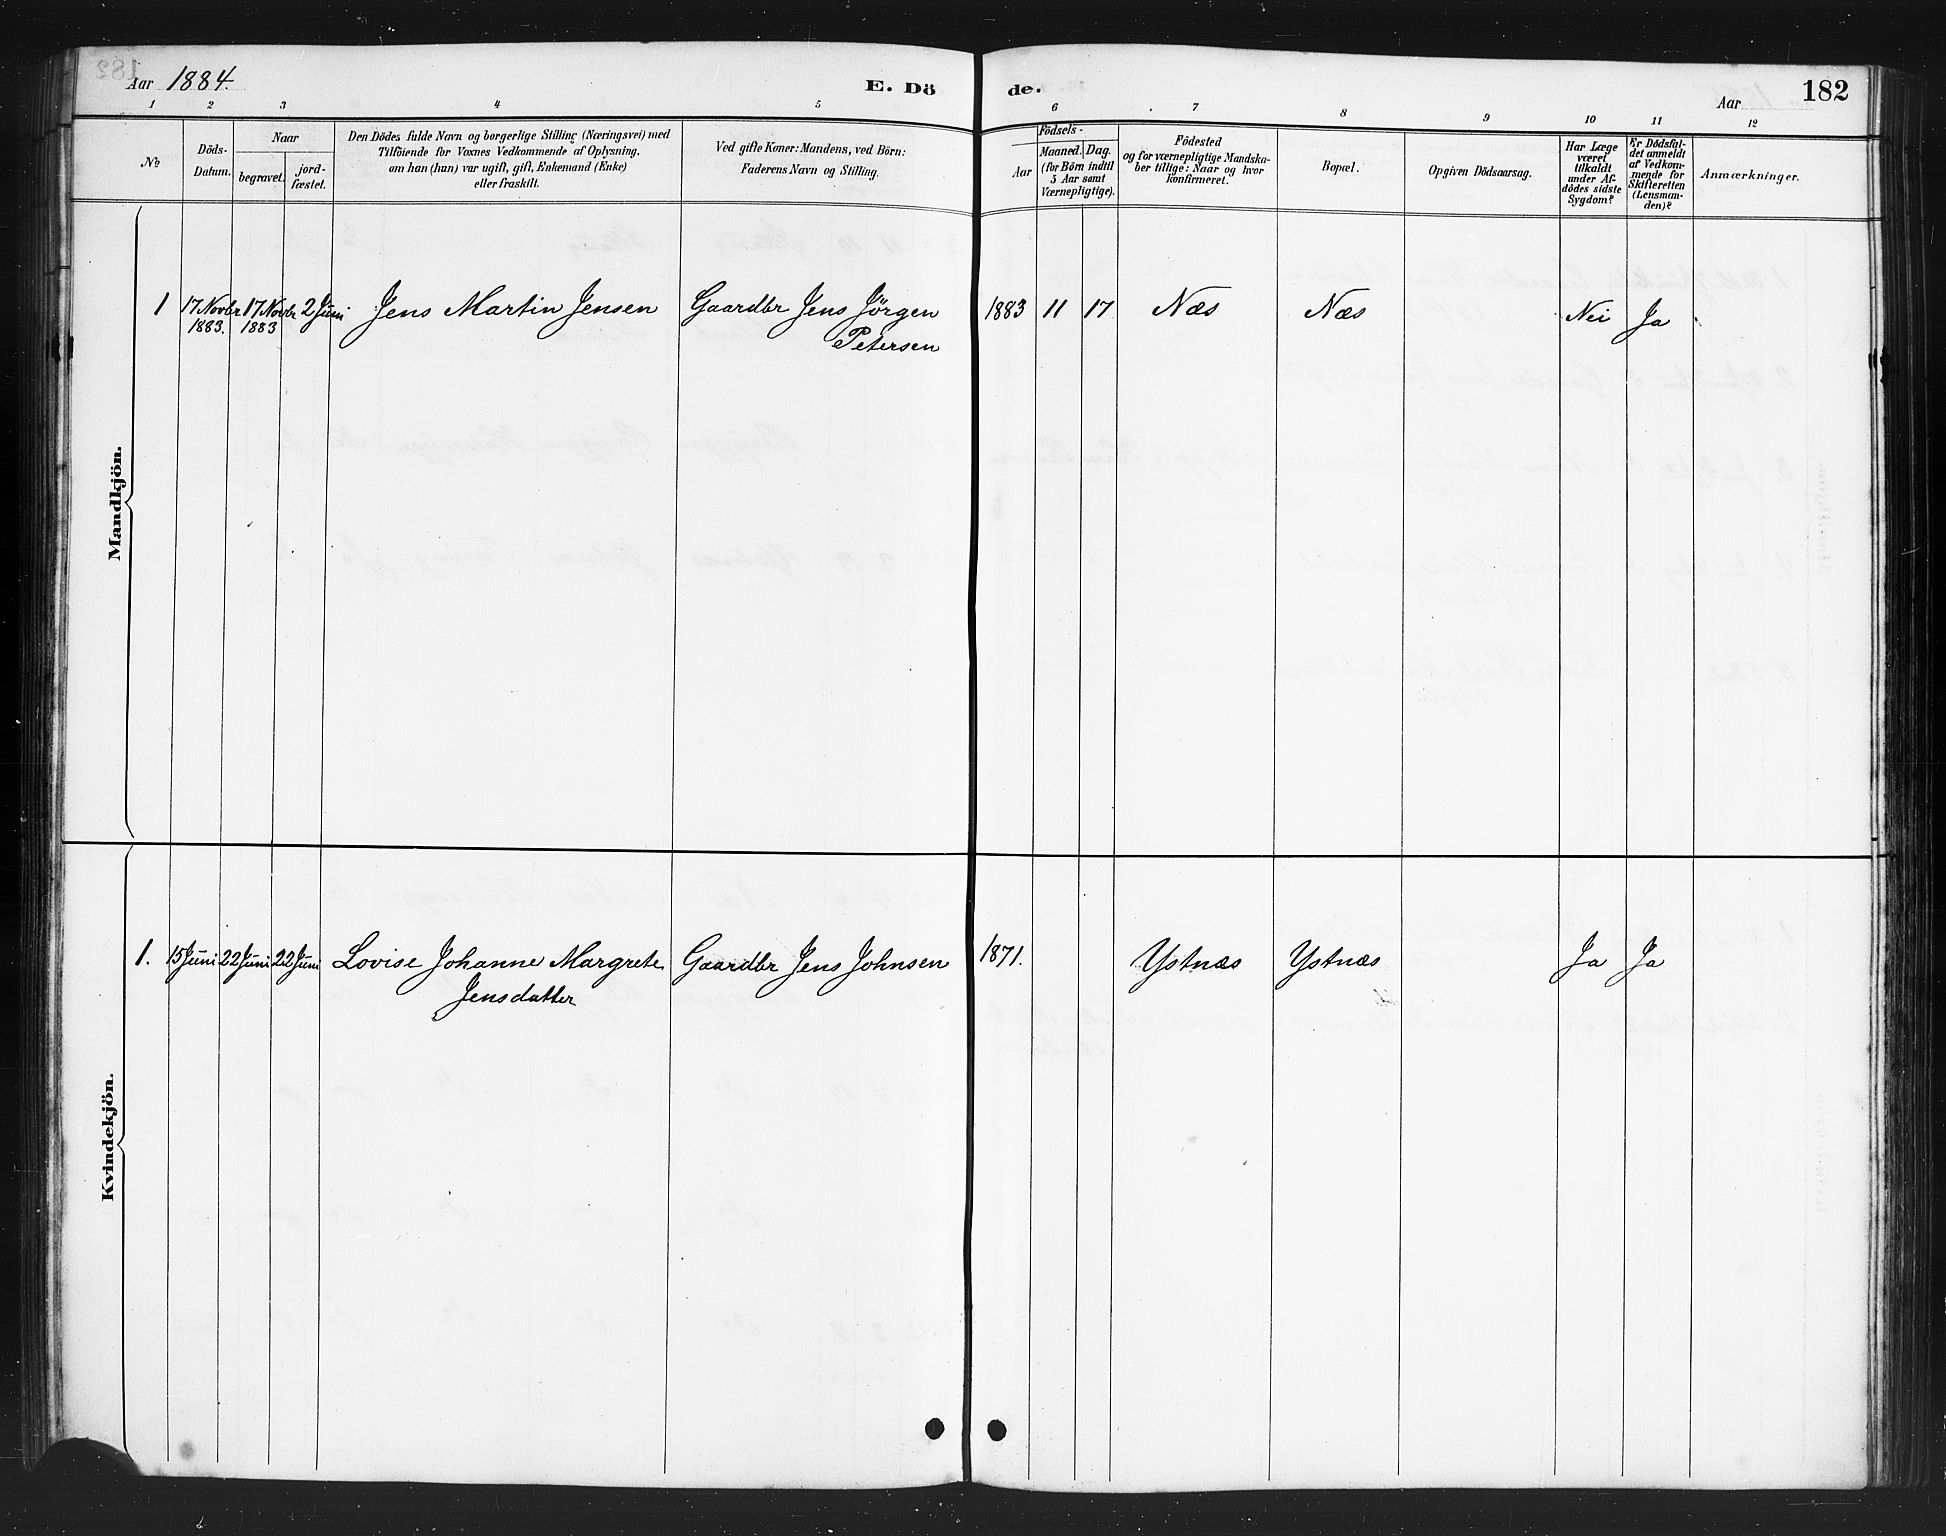 Aar 1884.
E. Dö
de.
Aar
182
1 2 3 4 5 6 7 8 9 10 11 12
No
Döds-
Datum.
Naar
begravet.
jord-
fæstet.
Den Dödes fulde Navn og borgerlige Stilling (Næringsvei) med
Tilföiende for Voxnes Vedkommende af Oplysning,
om han (hun) var ugift, gift, Enkemand (Enke)
eller fraskilt.
Ved gifte Koner: Mandens, ved Börn:
Faderens Navn og Stilling.
Födsels-
Aar
Maaned.
Dag.
(for Börn indtil
5 Aar samt
Værnepligtige).
Födested
og for værnepligtige Mandska-
ber tillige: Naar og hvor
konfirmeret.
Bopæl.
Opgiven Dödsaarsag.
Har Læge
været
tilkaldt
under Af-
dödes sidste
Sygdom?
Er Dödsfal-
det anmeldt
af Vedkom-
mende for
Skifteretten
(Lensman-
den)?
Anmærkninger.
Mandkjön.
1 17 Novbr 17 Novbr 2 Juni Jens Martin Jensen Gaardbr Jens Jørgen 1883 11 17 Næs Næs Nei Ja
1883. 1883 Petersen
Kvindekjön.
1. 15 Juni 22 Juni 22 Juni Lovise Johanne Margrete Gaardbr Jens Johnsen 1871. Ystnæs Ystnæs Ja Ja
Jensdatter